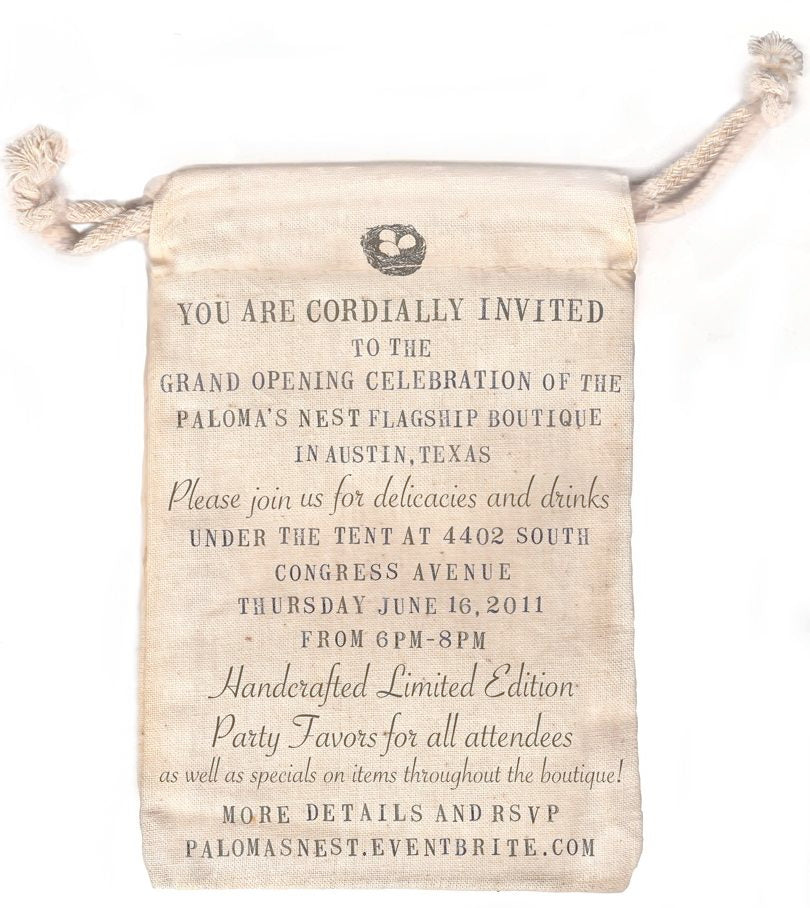 YOU ARE CORDIALLY INVITED
TO THE
GRAND OPENING CELEBRATION OF THE
PALOMA'S NEST FLAGSHIP BOUTIQUE
IN AUSTIN, TEXAS
Please join us for delicacies and drinks
UNDER THE TENT AT 4402 SOUTH
CONGRESS AVENUE
THURSDAY JUNE 16, 2011
FROM 6PM-8PM
Handcrafted Limited Edition
Party Favors for all attendees
as well as specials on items throughout the boutique!
MORE DETAILS AND RSVP
PALOMASNEST.EVENTBRITE.COM